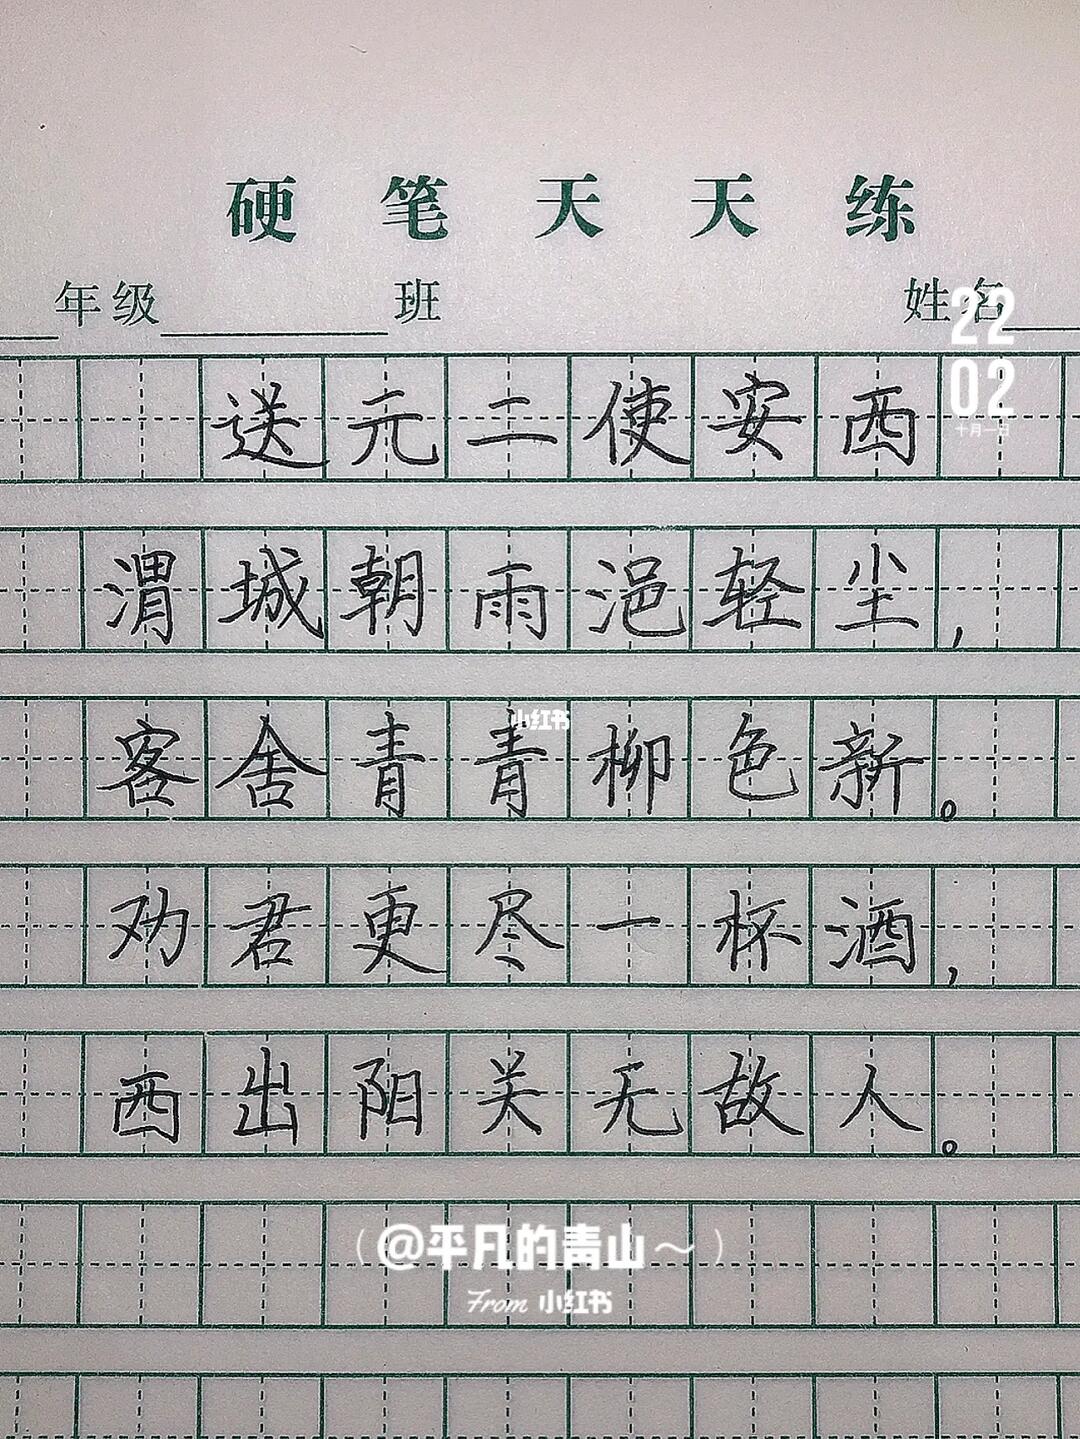 硬笔天天练
年级 班 姓名
22
02
十月一日
送元二使安西
渭城朝雨浥轻尘，
客舍青青柳色新。
小红书
劝君更尽一杯酒，
西出阳关无故人。
（@平凡的青山～）
From 小红书